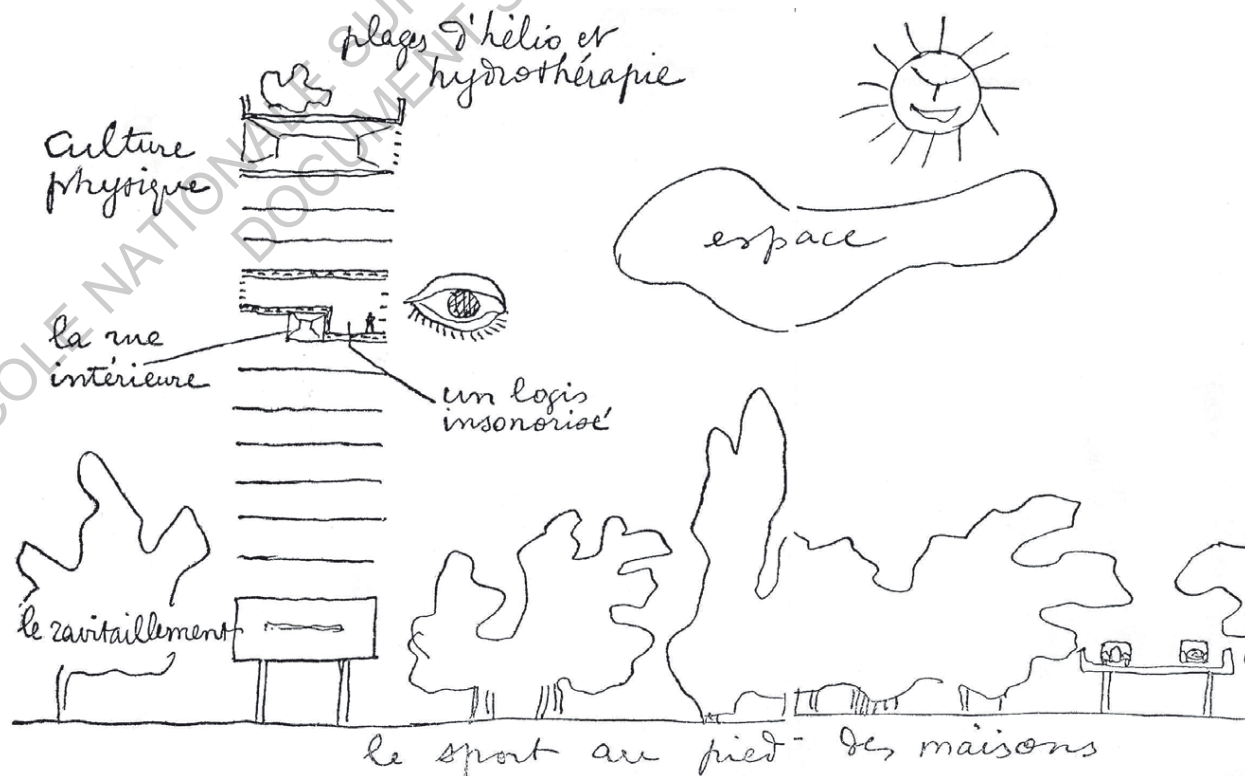 plages d'hélio et
hydrothérapie
Culture
physique
espace
la rue
intérieure
un logis
insonorisé
le ravitaillement
le sport au pied des maisons
ECOLE NATIONALE SU
DOCUMENT S